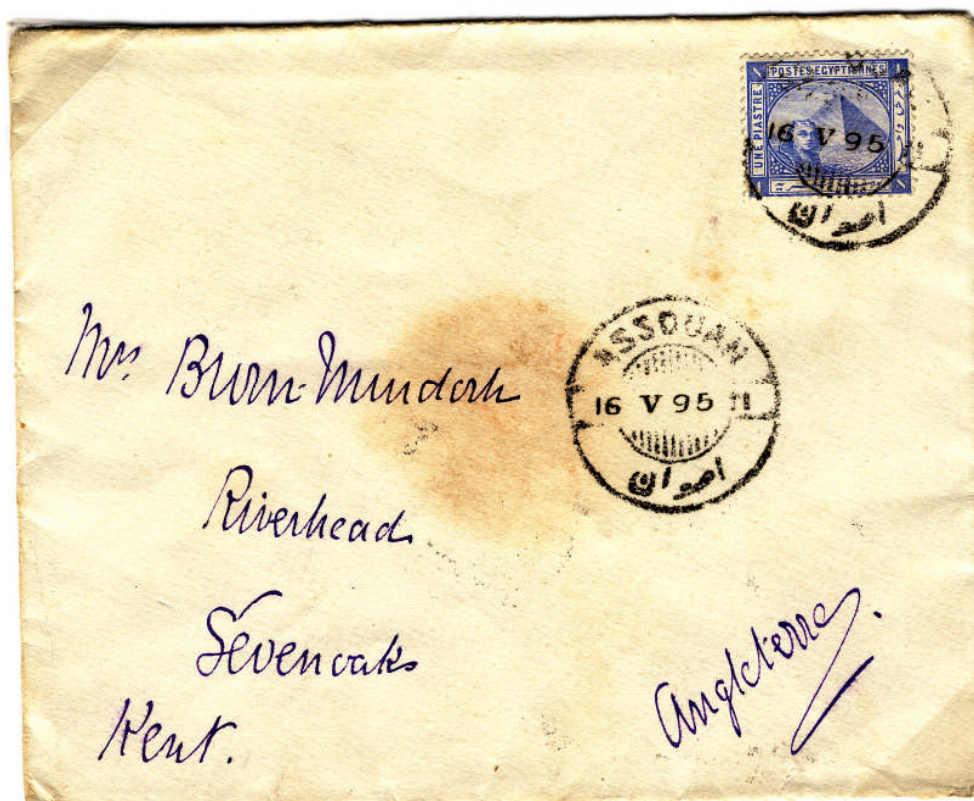 POSTES EGYPTIENNES
UNE PIASTRE
16 V 95
اصوان
ASSOUAN
16 V 95
اصوان
Mrs. Burn-Murdoch
Riverhead
Sevenoaks
Kent.
Angleterre.